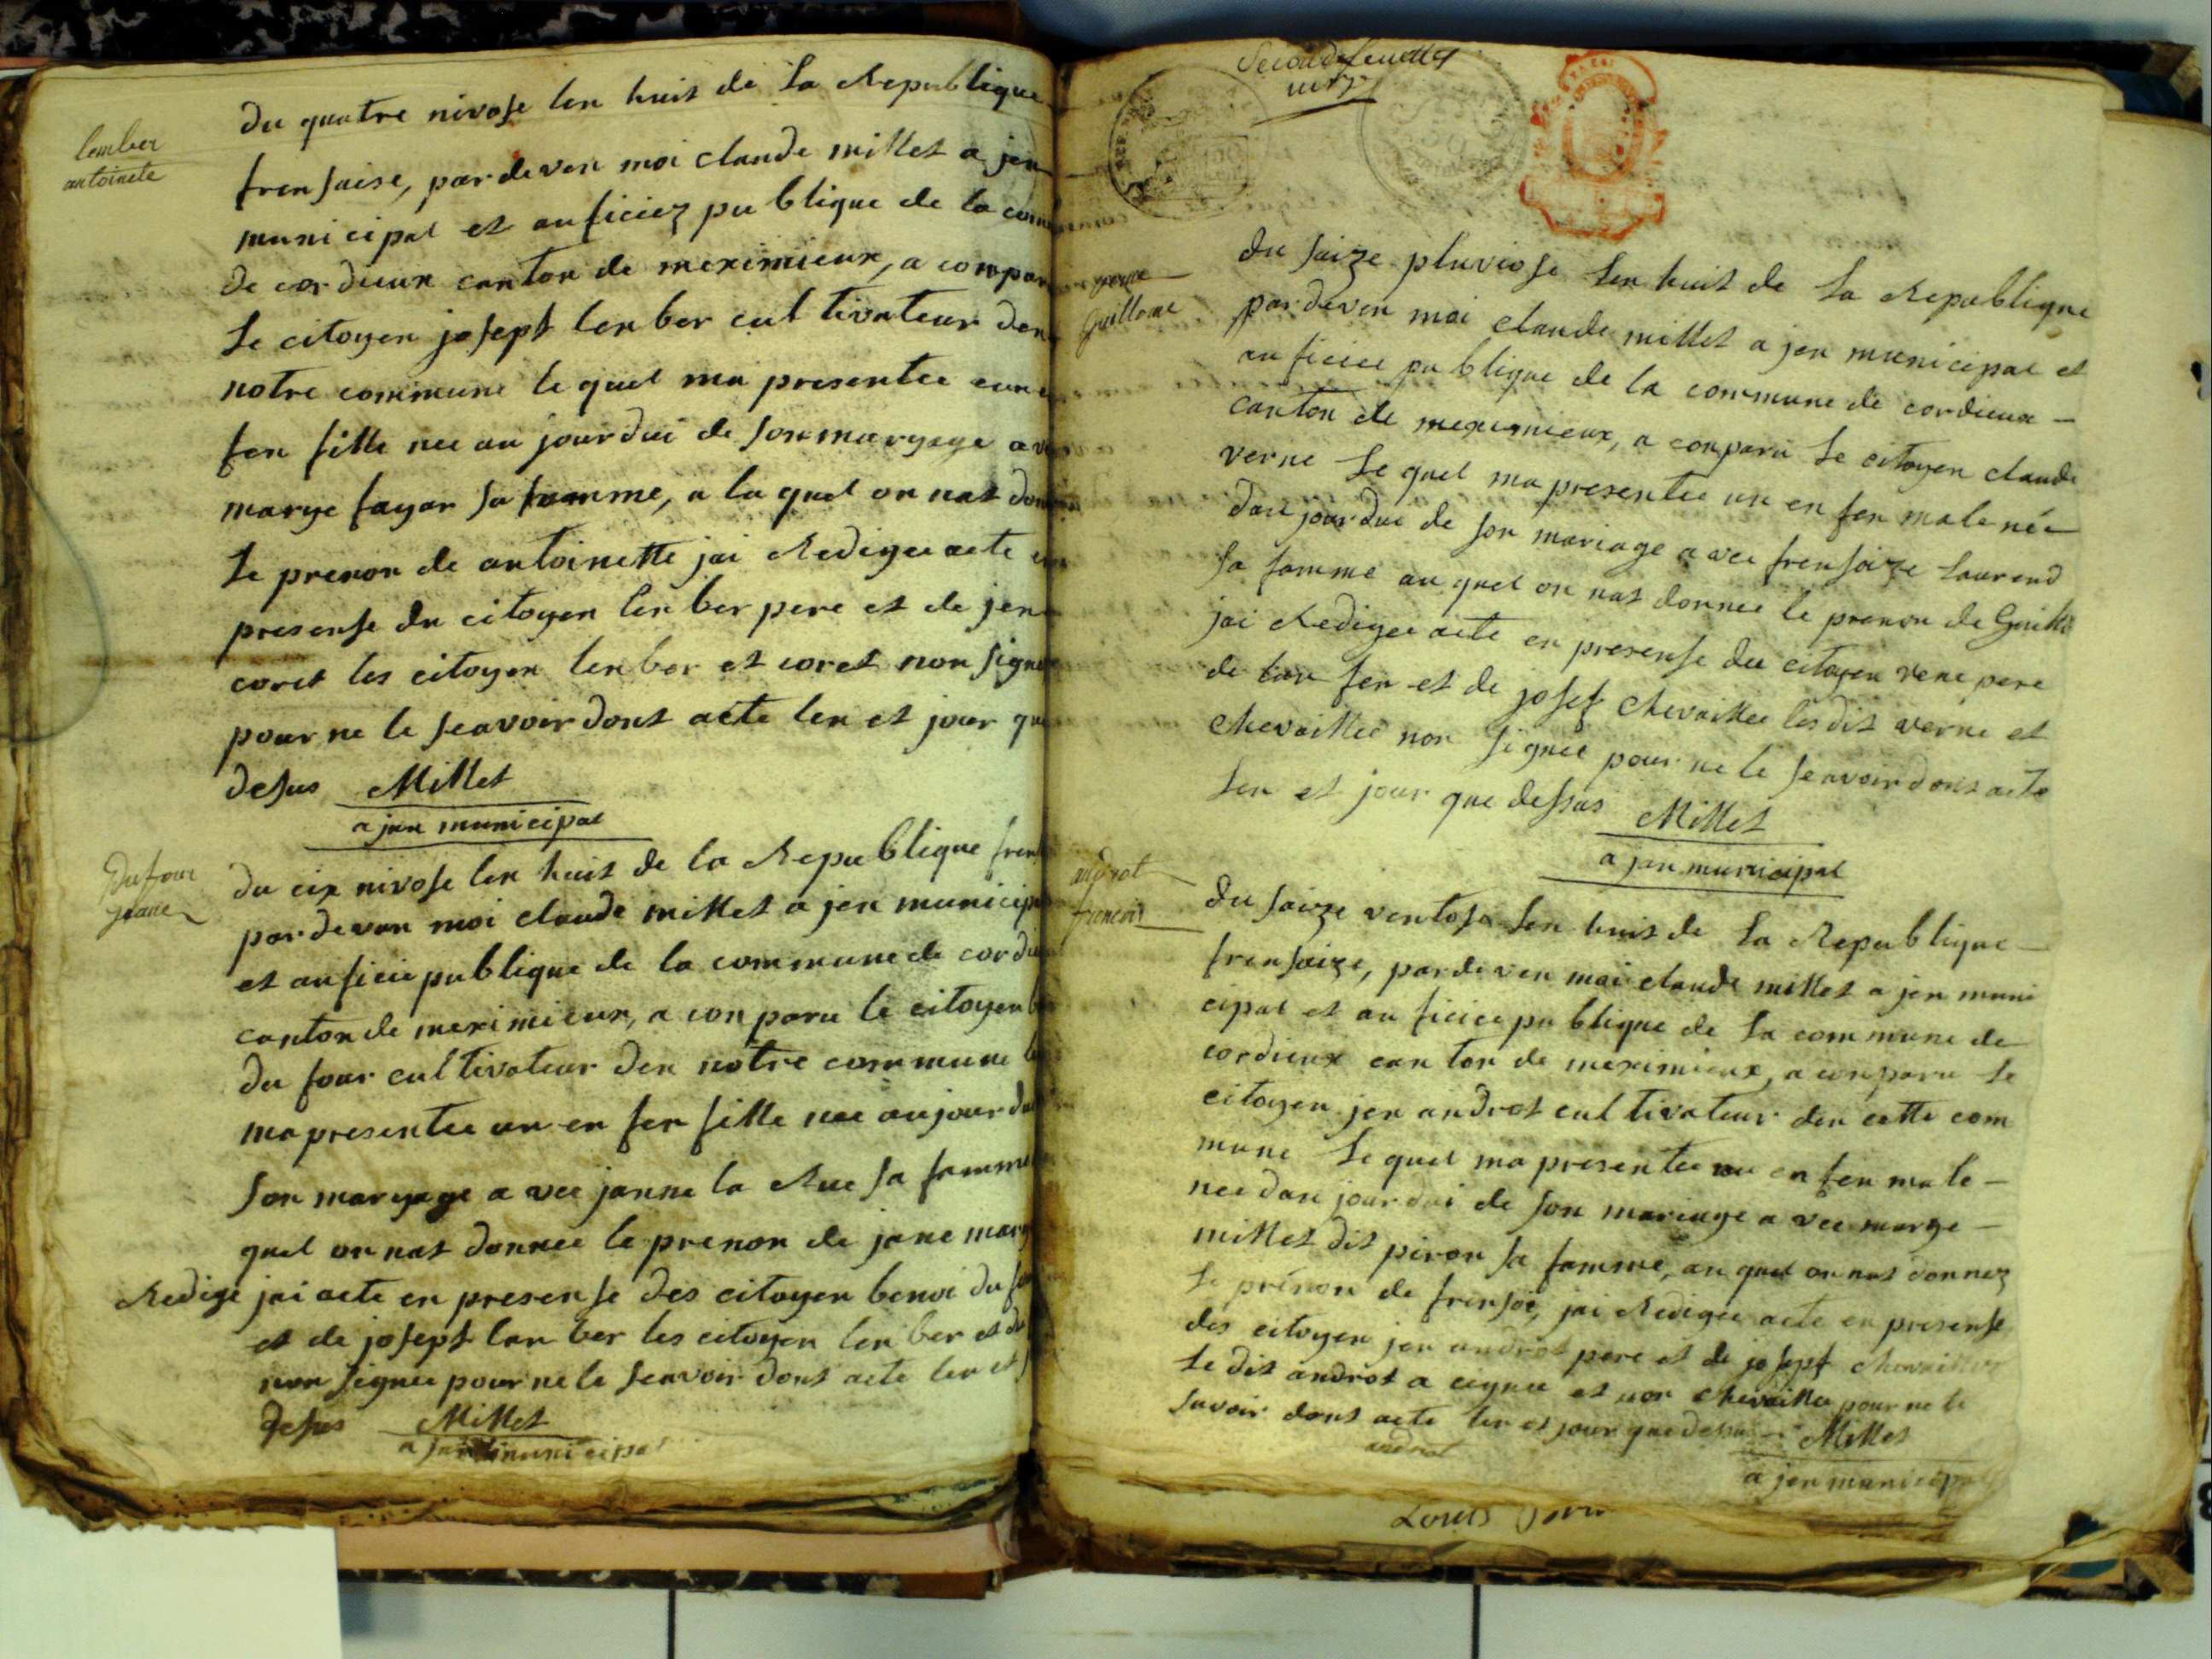 lember
antoinete
du quatre nivose len huit de la Republique
frensaise, pardeven moi claude millet a jen
municipal et auficiez publique de la com
de cordieux canton de meximieux, a compar
Le citoyen josept lenber cultivateur den
notre commune le quel ma presentee eun e
fen fille nee au jourdui de son maryage av
marye fayar sa famme, a la quel on nat don
Le prenon de antoinette jai Redigee acte en
presense du citoyen lenber pere et de jen
coret les citoyen lenber et coret non signe
pour ne le seavoir dont acte len et jour que
desus Millet
a jen municipal
Dufour
jeane
du cix nivose len huit de la Republique fren
pardevan moi claude millet a jen municip
et auficie publique de la commune de cordieu
canton de meximieux, a conparu le citoyen be
du four cultivateur den notre commune le
ma presentee un en fen fille nee aujourdu
son maryage a vec janne la Rue sa famme
quel on nat donnee le prenon de jane mary
Redige jai acte en presense des citoyen benoi du fo
et de josept lan ber les citoyen len ber et du
non signee pour ne le seavoir dont acte len et j
desus Millet
a jen municipal
Second feuillet
verne
Guillome
du saize pluviose Len huit de La Republique
pardeven moi claude millet a jen municipal et
auficiee publique de la commune de cordieux
canton de meximieux, a conparu Le citoyen claude
verne Le quel ma presentee un en fen male née
dau jourdui de son mariage a vec frensaize Laurend
sa famme au quel on nat donnee le prenon de Guille
jai Redigee acte en presense du citoyen verne pere
de fen et de josef chevaillee les dit verne et
chevaillee non signee pour ne le seavoir dont acte
Len et jour que dessus Millet
a jen municipal
androt
francois
du saize ventose Len huit de La Republique
frensaize, pardeven moi claude millet a jen muni
cipal et au ficiee publique de La commune de
cordieux canton de meximieux, a conparu Le
citoyen jen androt cultivateur den cette com
mune Le quel ma presentee un en fen male
nee dau jourdui de son mariage a vec marge
millet dit piron sa famme, au quel on nat donnez
Le prénon de frensoi, jai Redigee acte en presense
des citoyen jen androt pere et de josept chevaillee
Le dit androt a cignee et non chevaillee pour ne le
savoir dont acte len et jour que desus Millet
androt
a jen municipal
Louis